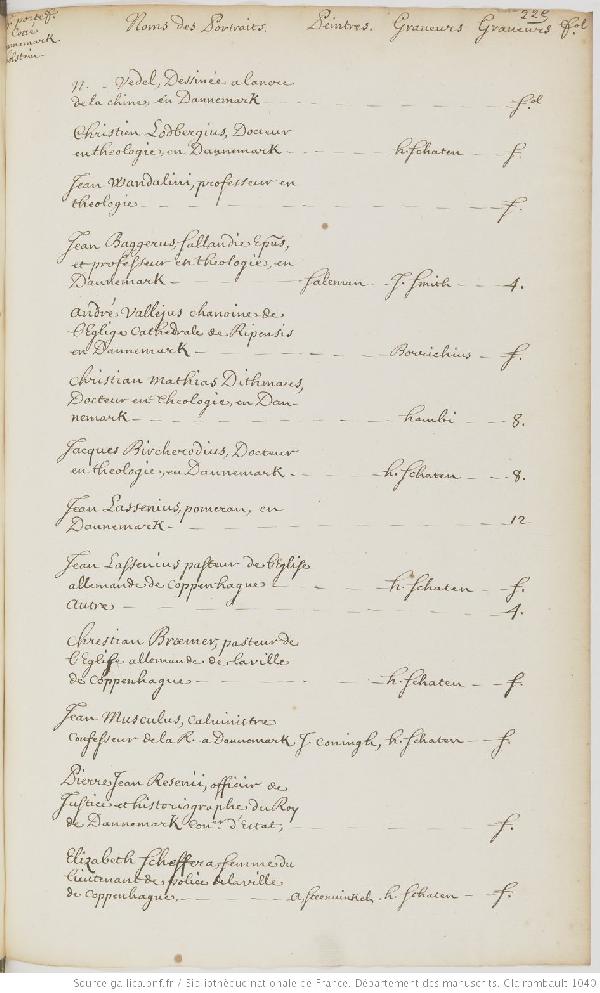 229
Noms des Portraits. Peintres. Graveurs Graveurs fol
n. - Vedel, Dessinée a lancre
de la chine, en Dannemark - fol
Christien Lodbergius, Docteur
en theologie, en Dannemark - h. Schaten - f.
Jean Wandalini, professeur en
theologie - f.
Jean Baggerus, fallandiæ Epūs,
et professeur en theologie, en
Dannemark - Saleman - J. Smith - 4.
André Vallejus chanoine de
l'Eglise Cathedrale de Ripensis
en Dannemark - Borrichius - f.
Christian Mathias Dithmaes,
Docteur en theologie, en Dan-
nemark - hambi - 8.
Jacques Bircherodius, Docteur
en theologie, en Dannemark - h. Schaten - 8.
Jean Lassenius, pomeran, en
Dannemark - 12
Jean Lassenius pasteur de l'Eglise
allemande de Coppenhague - h. Schaten - f.
Autre - 4.
Chrestian Bræmer, pasteur de
l'Eglise allemande de la ville
de Coppenhague - h. Schaten - f.
Jean Musculus, Calviniste
Confesseur de la R. a Dannemark J. Coningh, h. Schaten - f.
Pierre Jean Resenii, officier de
Justice et historiographe du Roy
de Dannemark Conser d'Estat, - f.
Elizabeth Scheffera femme du
lieutenant de police de la ville
de Coppenhague, - A steenwinkel. h. Schaten - f.
Source gallica.bnf.fr / Bibliothèque nationale de France. Département des manuscrits. Clairambault 1040